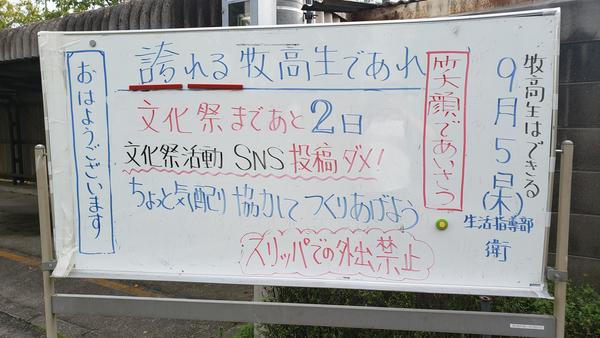 おはようございます
誇れる牧高生であれ
文化祭まであと2日
文化祭活動 SNS投稿ダメ!
ちょっと気配り 協力して つくりあげよう
スリッパでの外出禁止
笑顔であいさつ
牧高生はできる
9月5日(木)
生活指導部
衛